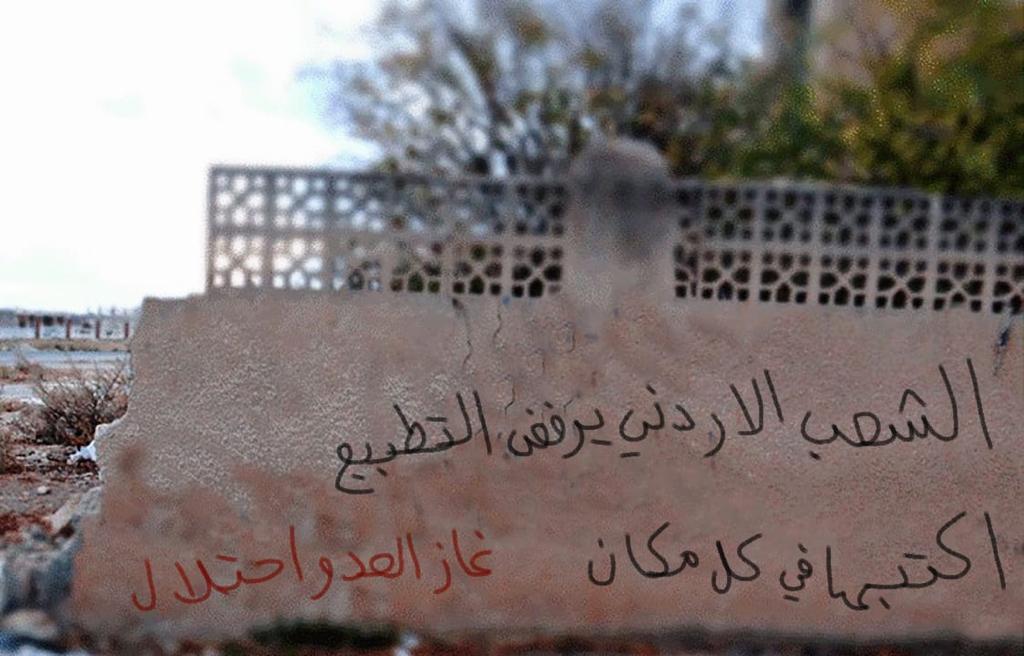 الشعب الاردني يرفض التطبيع
اكتبها في كل مكان
غاز العدو احتلال